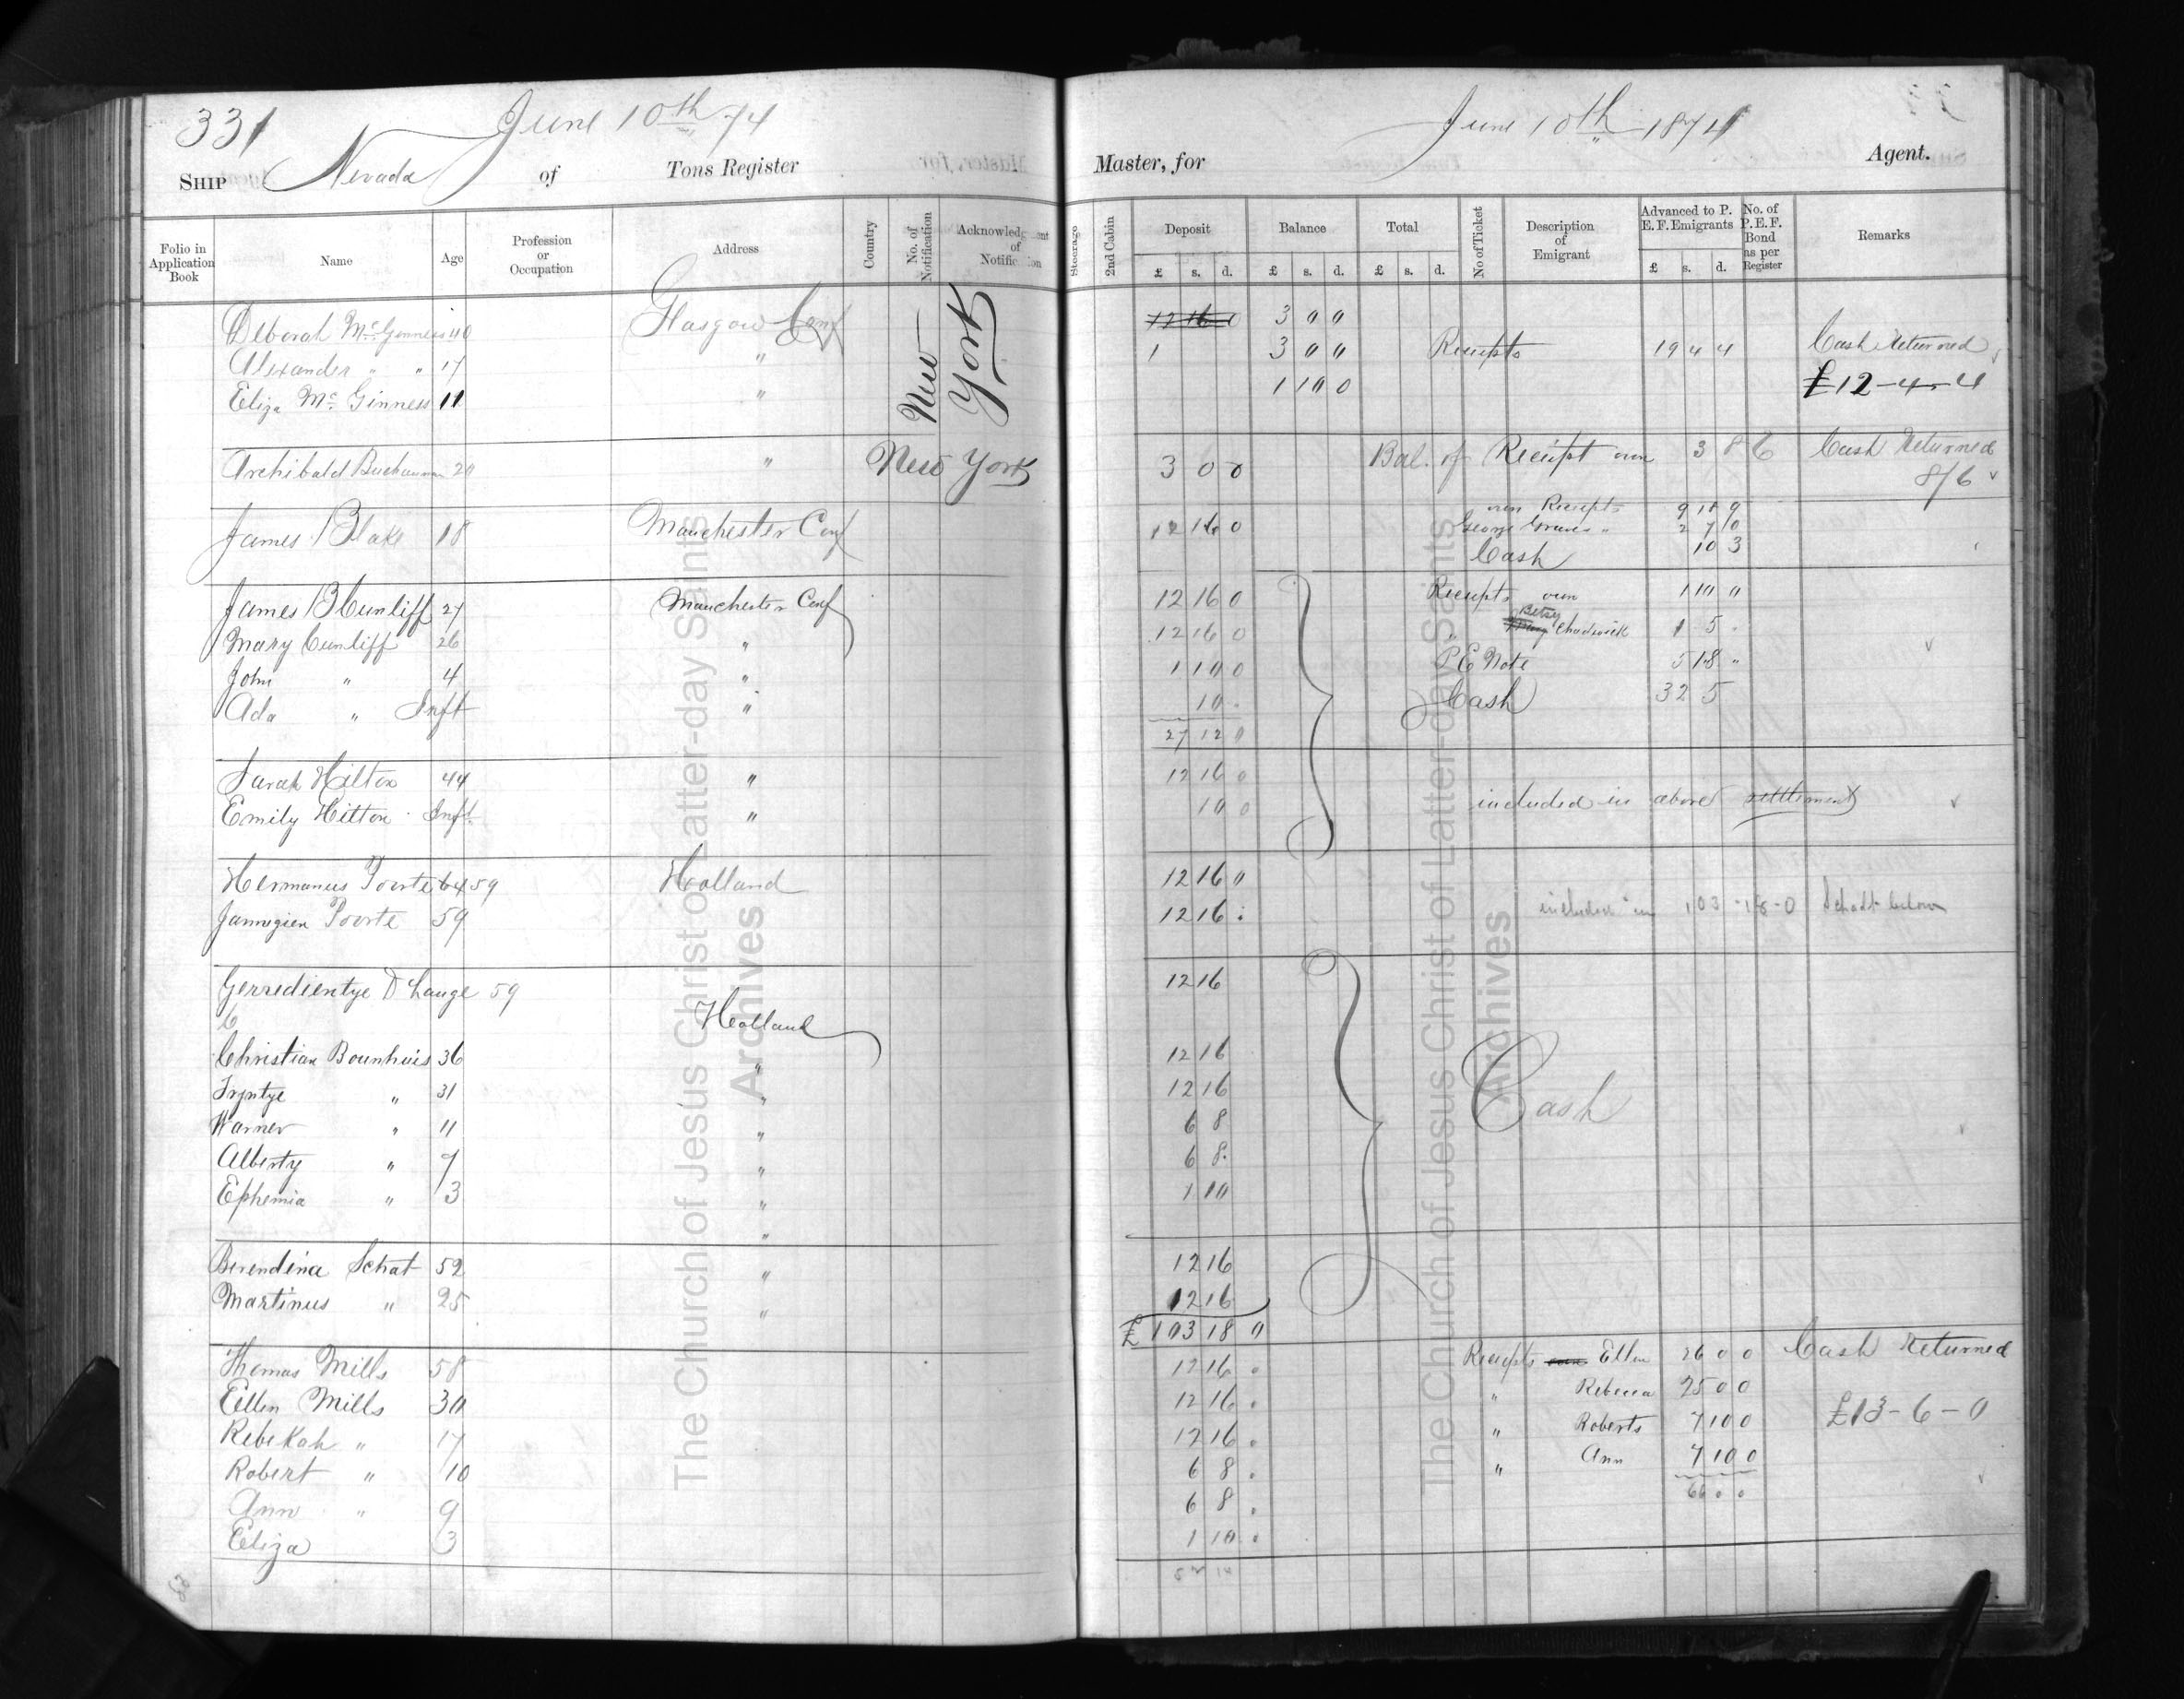 331 June 10th 74
SHIP Nevada of Tons Register
Folio in Application Book Name Age Profession or Occupation Address Country No. of Notification Acknowledgment of Notification
Deborah McGinness 40 Glasgow Conf
Alexander " " 17 "
Eliza Mc Ginness 11 "
New York
Archibald Buchanan 20 " New York
James Blake 18 Manchester Conf
James B Cunliff 27 Manchester Conf
Mary Cunliff 26 "
John " 4 "
Ada " Inft "
Sarah Hilton 44 "
Emily Hilton Inft. "
Hermanus Poorte 64 59 Holland
Jannigien Poorte 59
Gerredientye D Lange 59
Holland
Christian Bounhuis 36 "
Tryntye " 31 "
Warner " 11 "
Alberty " 7 "
Ephemia " 3 "
"
Berendina Schat 52 "
Martinus " 25 "
Thomas Mills 58
Ellen Mills 30
Rebekah " 17
Robert " 10
Ann " 9
Eliza 3
June 10th 1874
Master, for Agent.
Steerage 2nd Cabin Deposit Balance Total No of Ticket Description of Emigrant Advanced to P. E. F. Emigrants No. of P.E.F. Bond as per Register Remarks
£ s. d. £ s. d. £ s. d. £ s. d.
12 16 0 3 0 0
1 3 0 0 Receipts 19 4 4 Cash Returned
1 10 0 £12-4-4
3 0 0 Bal. of Receipt own 3 8 6 Cash Returned
8/6
own Receipts
12 16 0 George Graves " 2 7 0
Cash 10 3
12 16 0 Receipts own 1 10 0
12 16 0 " Betsy Chadwick 1 5 .
1 10 0 P E Note 5 18 "
10 . Cash 32 5
27 12 0
12 16 0
10 0 included in above settlement
12 16 0
12 16 : included in 103-18-0 Schadt below
12 16
12 16
12 16
6 8 Cash
6 8.
1 10
12 16
12 16
£ 103 18 0
12 16 . Receipts own Ellen 26 0 0 Cash Returned
12 16 . " Rebecca 25 0 0
12 16 . " Roberts 7 10 0 £13-6-0
6 8 . " Ann 7 10 0
6 8 . 66 0 0
1 10 .
The Church of Jesus Christ of Latter-day Saints
Archives
The Church of Jesus Christ of Latter-day Saints
Archives